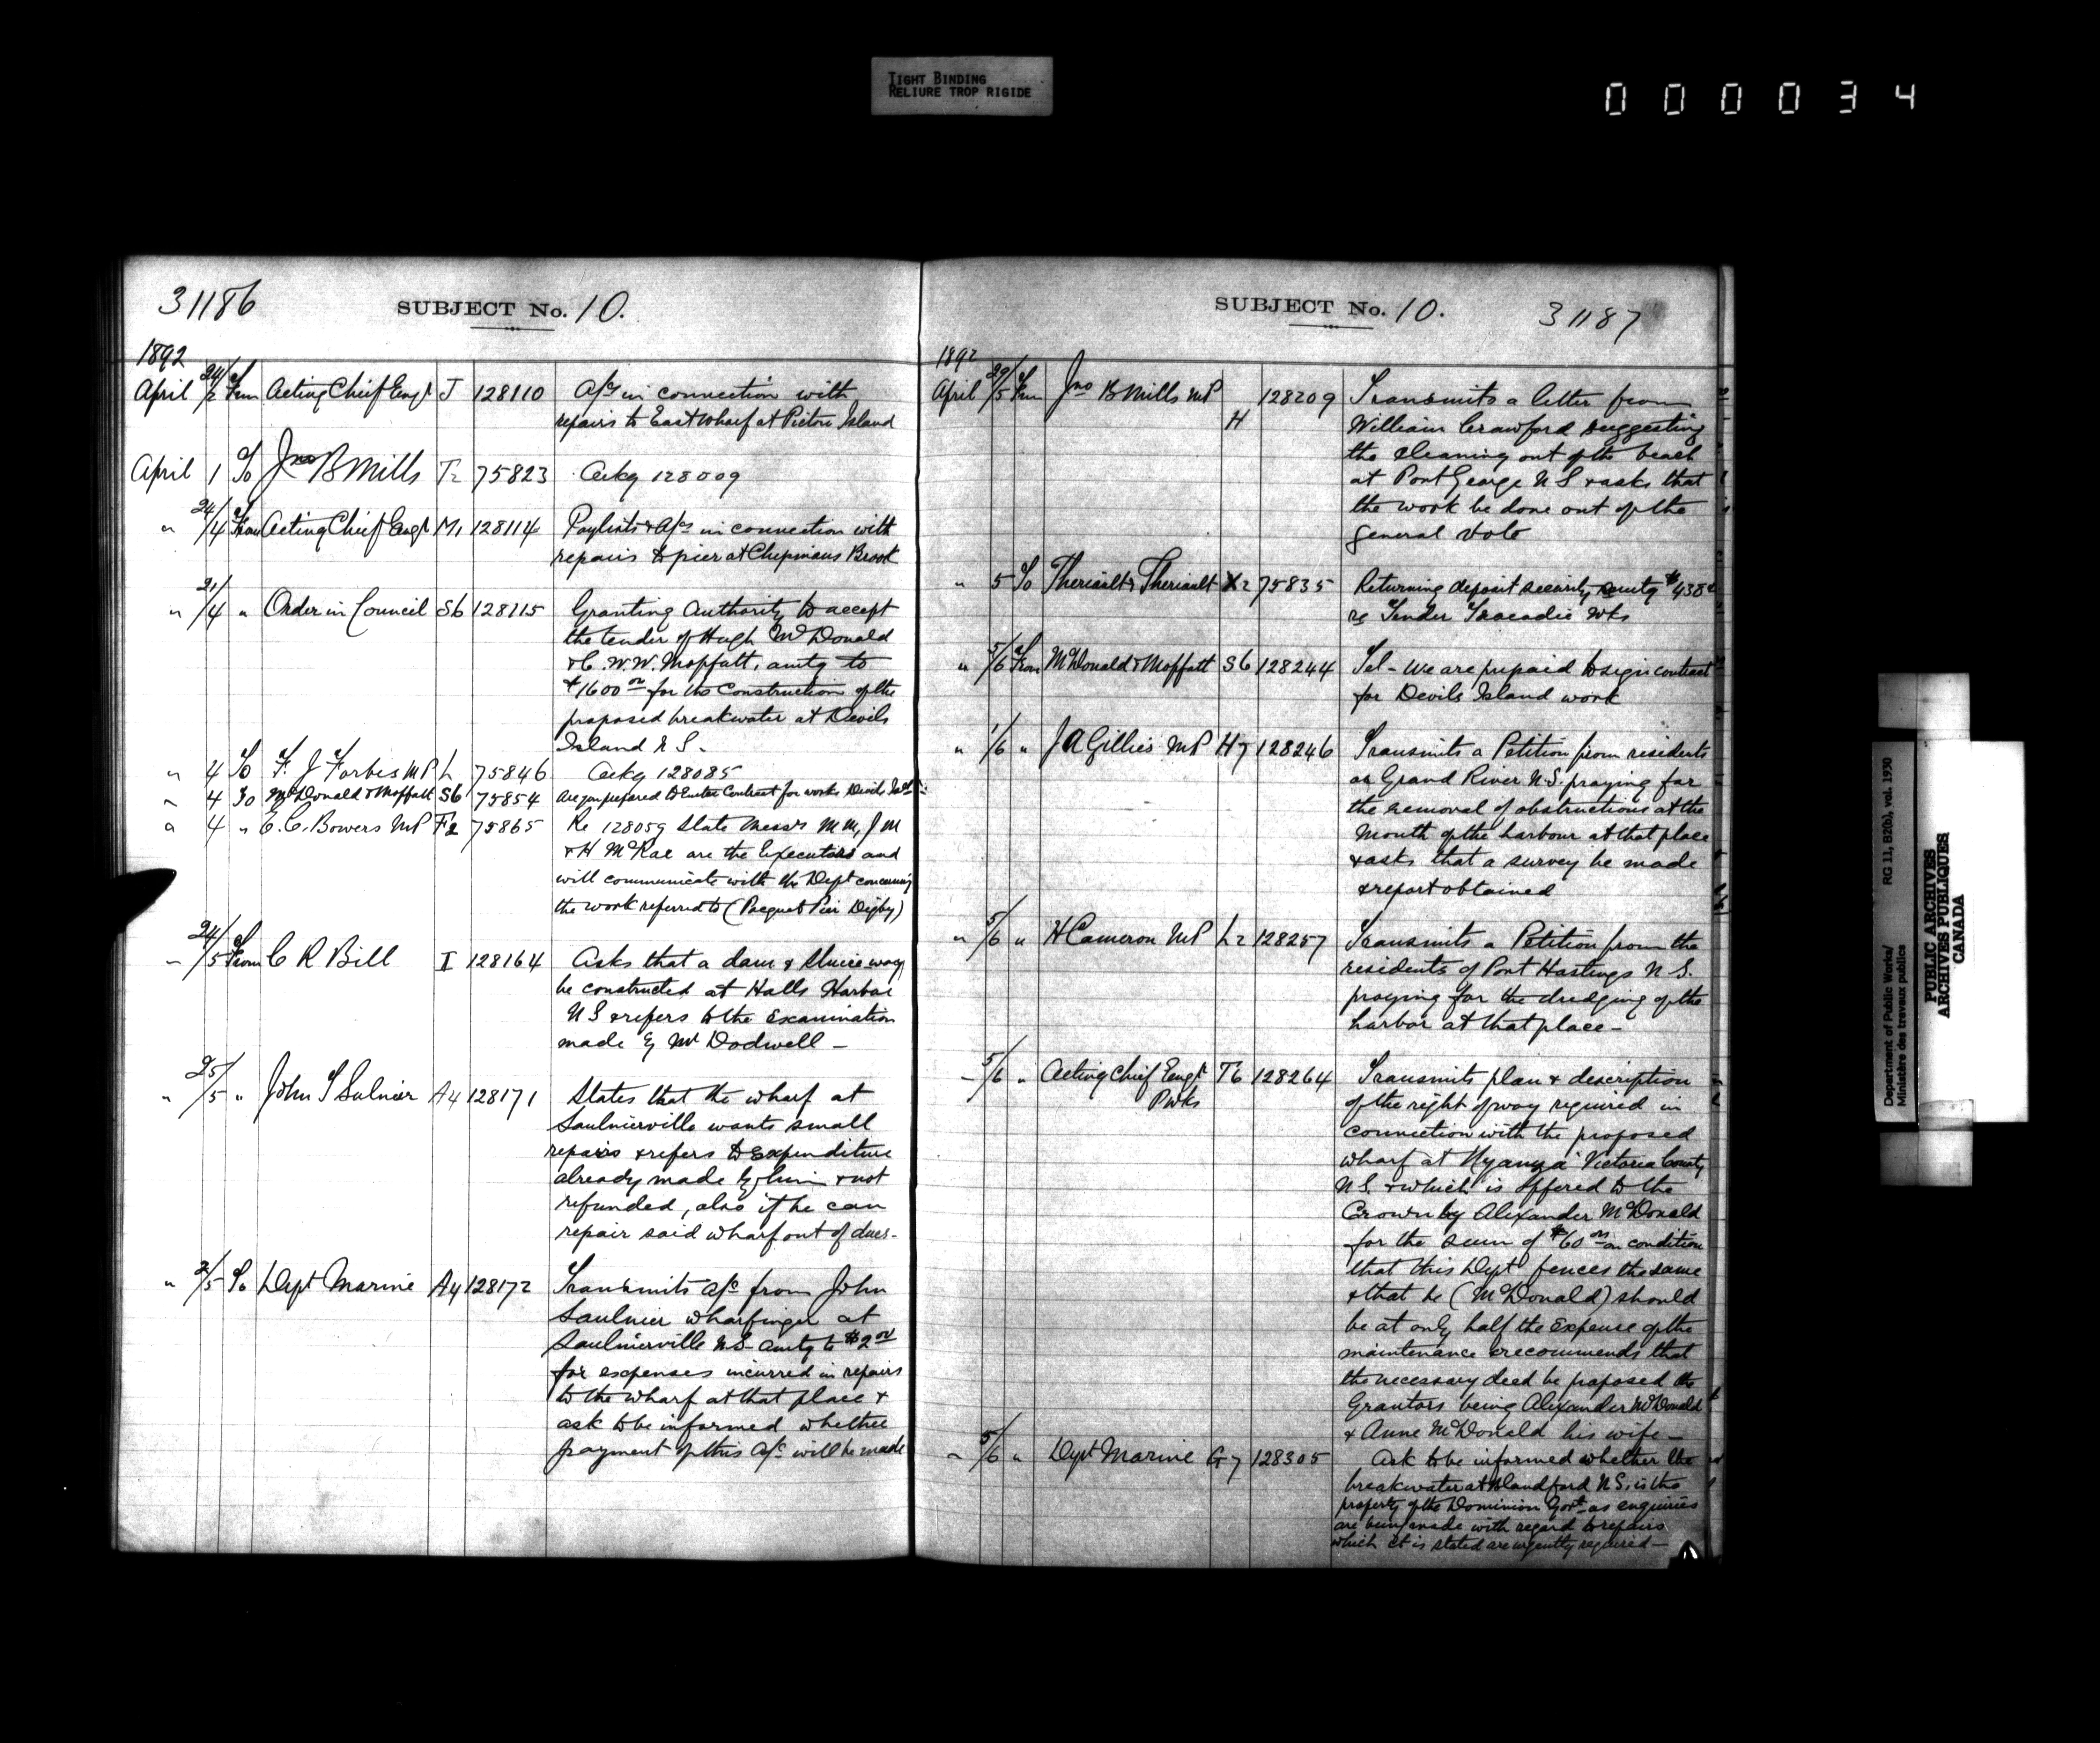 TIGHT BINDING
RELIURE TROP RIGIDE
000034
31186
SUBJECT No. 10.
1892
April 24/2 From Acting Chief Engr J 128110 A/cs in connection with
repairs to East Wharf at Pictou Island
April 1 To Jno B Mills T2 75823 Ackg 128009
" 24/4 From Acting Chief Engr M1 128114 Paylists & A/cs in connection with
repairs to pier at Chipmans Brook
" 21/4 " Order in Council S6 128115 Granting Authority to accept
the tender of Hugh McDonald
& C. W. W. Moffatt, amtg to
$1600 00 for the Construction of the
proposed breakwater at Devils
Island N S -
" 4 To F. J Forbes MP L 75846 Ackg 128085
" 4 To McDonald & Moffatt S6 75854 Are you prepared to Enter Contract for works Devils Isld
" 4 " E. C. Bowers MP F2 75865 Re 128059 State Messrs M M, J M
& H McRae are the Executors and
will communicate with the Dept concerning
the work referred to (Pacquet Pier Digby)
" 24/5 From C R Bill I 128164 Asks that a dam & Sluice way
be constructed at Halls Harbor
N S & refers to the Examination
made by Mr Dodwell -
" 25/5 " John S Sulnier A4 128171 States that the wharf at
Saulnierville wants small
repairs & refers to Expenditure
already made by him & not
refunded, also if he can
repair said wharf out of dues -
" 2/5 To Dept Marine A4 128172 Transmits a/c from John
Saulnier wharfinger at
Saulnierville N.S. amtg to $2 00
for expenses incurred in repairs
to the wharf at that place &
ask to be informed whether
payment of this A/c will be made
SUBJECT No. 10.
31187
1892
April 29/5 From Jno B Mills MP H 128209 Transmits a letter from
William Crawford suggesting
the cleaning out of the beach
at Port George N S & asks that
the work be done out of the
general vote
" 5 To Theriault & Theriault X2 75835 Returning deposit security amtg $438
re Tender Tracadie Wks
" 5/6 From McDonald & Moffatt S6 128244 Tel - We are prepaid to sign contract
for Devils Island work
" 1/6 " J A Gillies MP H7 128246 Transmits a Petition from residents
at Grand River N.S. praying for
the removal of obstructions at the
Mouth of the harbour at that place
& asks that a survey be made
& report obtained
" 5/6 " H Cameron MP L2 128257 Transmits a Petition from the
residents of Port Hastings N S.
praying for the dredging of the
harbor at that place -
" 5/6 " Acting Chief Engr T6 128264 Transmits plan & description
PWks of the right of way required in
connection with the proposed
wharf at Nyanza Victoria County
N S. & which is offered to the
Crown by Alexander McDonald
for the sum of $60 00 on condition
that this Dept fences the same
& that he (McDonald) should
be at only half the Expense of the
maintenance & recommends that
the necessary deed be prepared the
Grantors being Alexander McDonald
& Anne McDonald his wife -
" 5/6 " Dept Marine G7 128305 Ask to be informed whether the
breakwater at Blandford N S, is the
property of the Dominion Govt as enquiries
are being made with regard to repairs
which it is stated are urgently required -
Department of Public Works/
Ministère des travaux publics
RG 11, B2(b), vol. 1930
PUBLIC ARCHIVES
ARCHIVES PUBLIQUES
CANADA